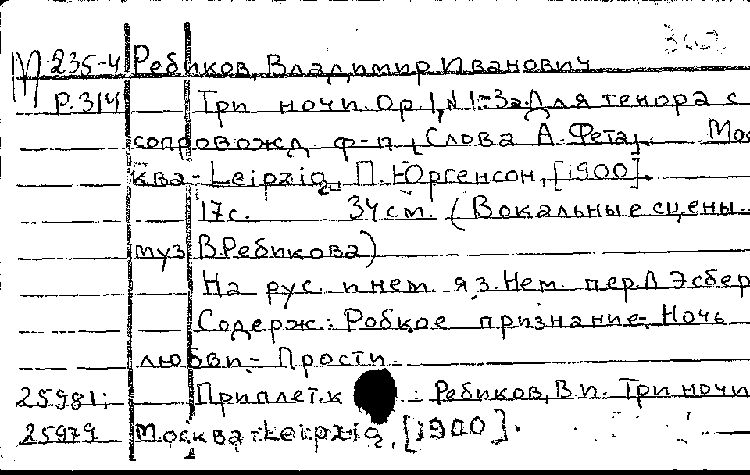 М 235-4 Ребиков, Владимир Иванович
Р.314 Три ночи. Ор 1, N 1-3. Для тенора с
сопровожд ф-п, Слова А. Фета. Мос
ква-Leipzig, П. Юргенсон, [1900].
17с. 34см. (Вокальные сцены
муз В.Ребикова)
На рус. и нем. яз. Нем. пер А Эсбер
Содерж.: Робкое признание.- Ночь
любви.- Прости
25981; Приплет.к : Ребиков, В И. Три ночи
25979 Москва-Leipzig, [1900].